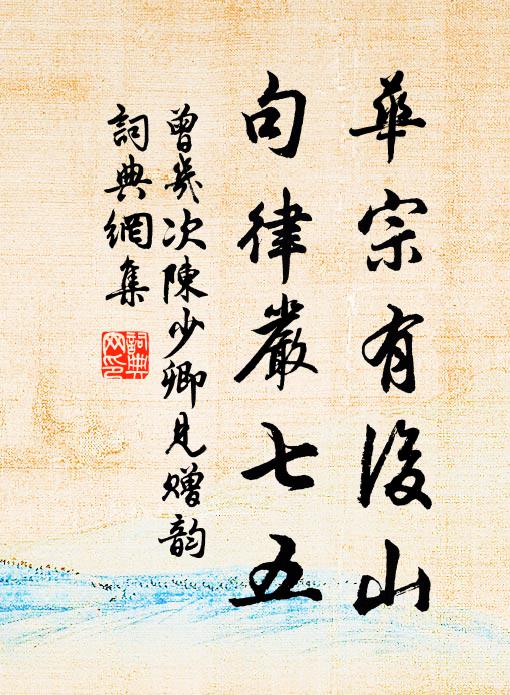 華宗有後山
句律嚴七五
曾幾次陳少卿見贈韵
詞典網集